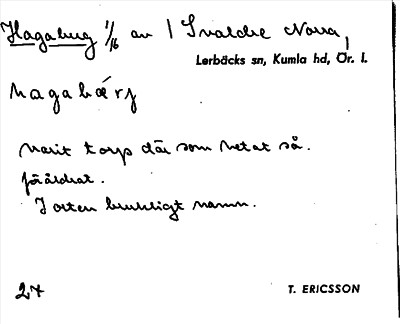 Hagaberg 1/16 av 1 Svalche Norra,
Lerbäcks sn, Kumla hd, Ör. l.
hagabærj
varit torp där som hetat så.
föråldrat.
I orten brukligt namn.
24
T. ERICSSON